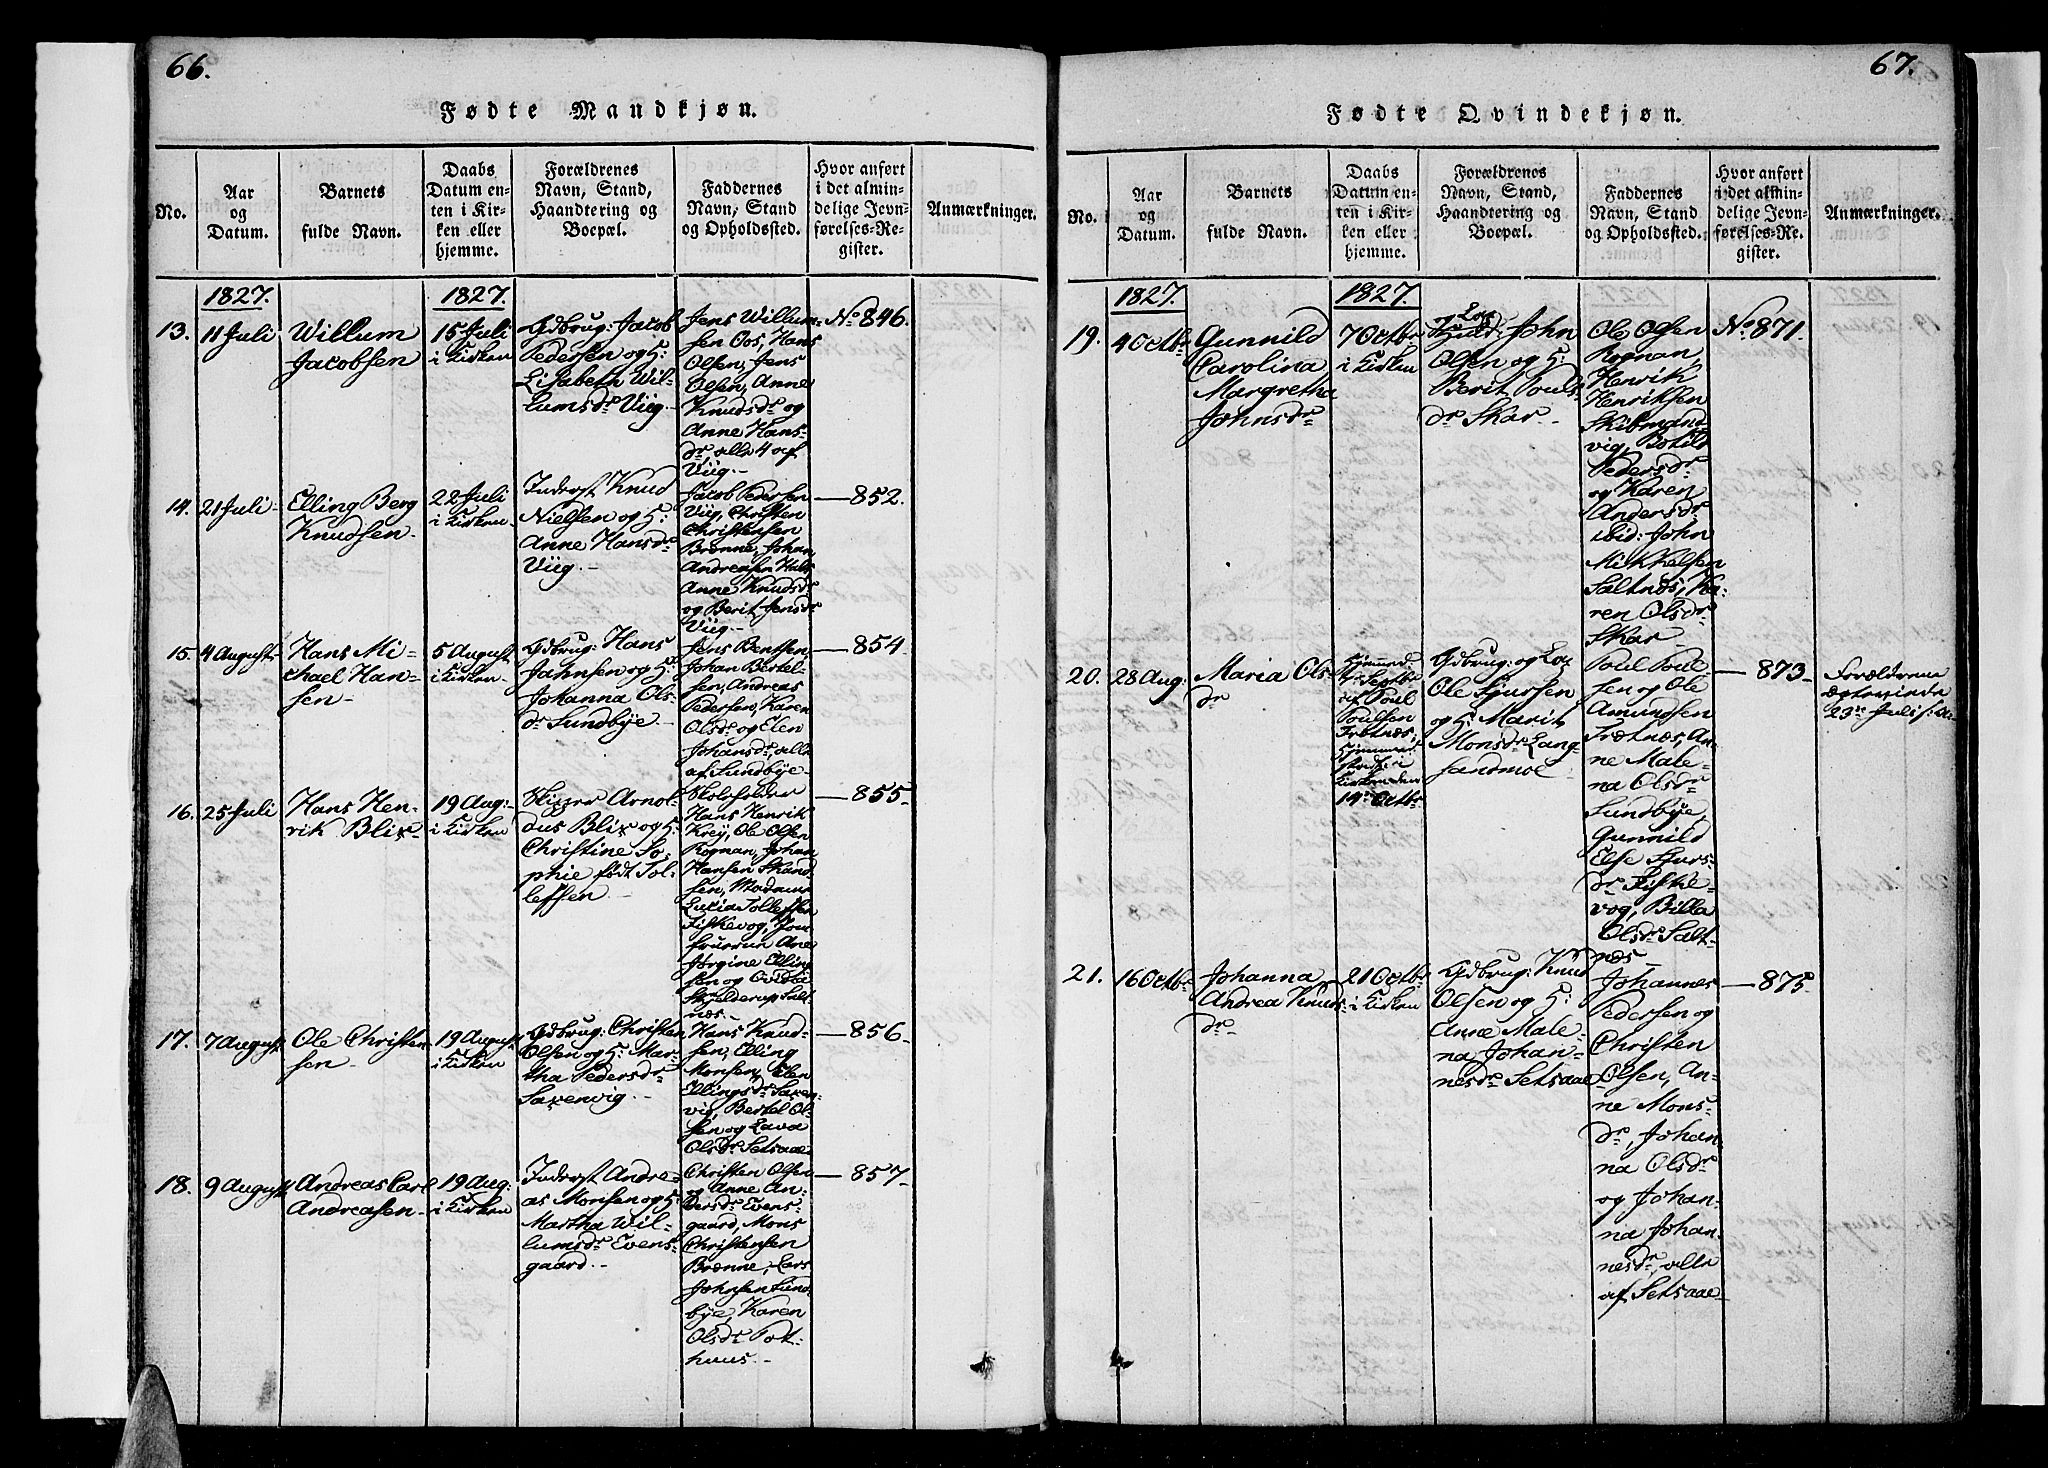 66.
Fødte Mandkjøn.
No.
Aar
og
Datum.
Barnets
fulde Navn.
Daabs
Datum en-
ten i Kir-
ken eller
hjemme.
Forældrenes
Navn, Stand,
Haandtering og
Boepæl.
Faddernes
Navn, Stand
og Opholdssted.
Hvor anført
i det almin-
delige Jevn-
førelses-Re-
gister.
Anmærkninger.
1827.
1827.
13.
11 Juli
Willum
Jacobsen
15 Juli
i Kirken
Gdbrug: Jacob
Pedersen og H:
Lisabeth Wil-
lumsdr Viig.
Jens Willum-
sen Oos, Hans
Olsen, Jens
Olsen, Anne
Knudsdr og
Anne Hans-
dr, alle 4 af
Viig.
No 846.
14.
21 Juli
Elling Berg
Knudsen
22 Juli
i Kirken
Inderst Knud
Nielsen og H:
Anne Hansdr
Viig.
Jacob Pedersen
Viig, Christen
Christensen
Brønne, Johan
Andreasen
Anne Knudsdr
og Berit Jensdr
Viig
852.
15.
4 August
Hans Mi-
chael Han-
sen
5 August
i Kirken
Gdbrug: Hans
Jahnsen og H:
Johanna Ols-
dr Sundbye
Jens Bentsen,
Johan Bertel-
sen, Andreas
Pedersen, Karen
Olsdr og Elen
Johansdr, alle
af Sundbye
854
16.
25 Juli
Hans Hen-
rik Blix
19 Aug:
i Kirken
Skipper Arnol-
dus Blix og H:
Christine So-
phie født Tol-
lefsen
Skoleholder
Hans Henrik
Krey, Ole Olsen
Rognan, Johan
Hansen
sen, Madame
Lucia Tollefsen
Fiskevog, Jom-
fruerne Ane
Jørgine Elling
sen og
Skjelderup Salt-
næs
855.
17.
7 August
Ole Christen
sen
19 August
i Kirken
Gdbrug: Christen
Olsen og H: Mar-
tha Pedersdr
Saxenvig.
Hans Knud-
sen, Elling
Monsen, Elen
Ellingsdr Saxen-
vig, Bertel Ol-
sen og
Olsdr Setsaae
856
18.
9 August
Andreas Carl
Andreasen
19 Aug:
i Kirken
Inderst Andre-
as Monsen og H:
Martha Wil-
lumsdr Evens-
gaard.
Christen Olsen
og Anne An-
dersdr Evens-
gaard, Mons
Christensen
Brønne, Lars
Johnsen Sund-
bye, Karen
Olsdr Pot-
huus.
857
67.
Fødte Qvindekjøn.
No.
Aar
og
Datum.
Barnets
fulde Navn.
Daabs
Datum en-
ten i Kir-
ken eller
hjemme.
Forældrenes
Navn, Stand,
Haandtering og
Boepæl.
Faddernes
Navn, Stand
og Opholdssted.
Hvor anført
i det almin-
delige Jevn-
førelses-Re-
gister.
Anmærkninger.
1827.
1827.
19.
4 Octbr
Gunnild
Carolina
Margretha
Johnsdr
7 Octbr
i Kirken
John
Olsen og H:
Berit Pouls-
dr Skar
Ole Olsen
Rognan,
Henrik
Henriksen
Skibmand-
vig,
Pedersdr
og Karen
Andersdr
ibid: John
Mikkelsen
Saltnæs, Ka-
ren Olsdr
Skar
No 871.
20.
28 Aug:
Maria Ols-
dr
af Poul
Poulsen
Kirken den
14de Octbr
Gdbrug: og
Ole Sjursen
og H: Marit
Monsdr Lang-
sandmoe
Poul Poul
sen og Ole
Amundsen
An-
ne Male-
na Olsdr
Sundbye,
Gunnild
Else Sjurs-
dr Fiske-
vog,
Olsdr Salt-
næs
873
Forældrene
23de Juli
21.
16 Octbr
Johanna
Andrea Knuds-
dr
21 Octbr
i Kirken
Gdbrug: Knud
Olsen og H:
Anne Male-
na Johan-
nesdr Setsaae
Johannes
Pedersen og
Christen
Olsen, An-
ne Mons-
dr, Johan-
na Olsdr
og Johan-
na Johan-
nesdr, alle
af Setsaae
875